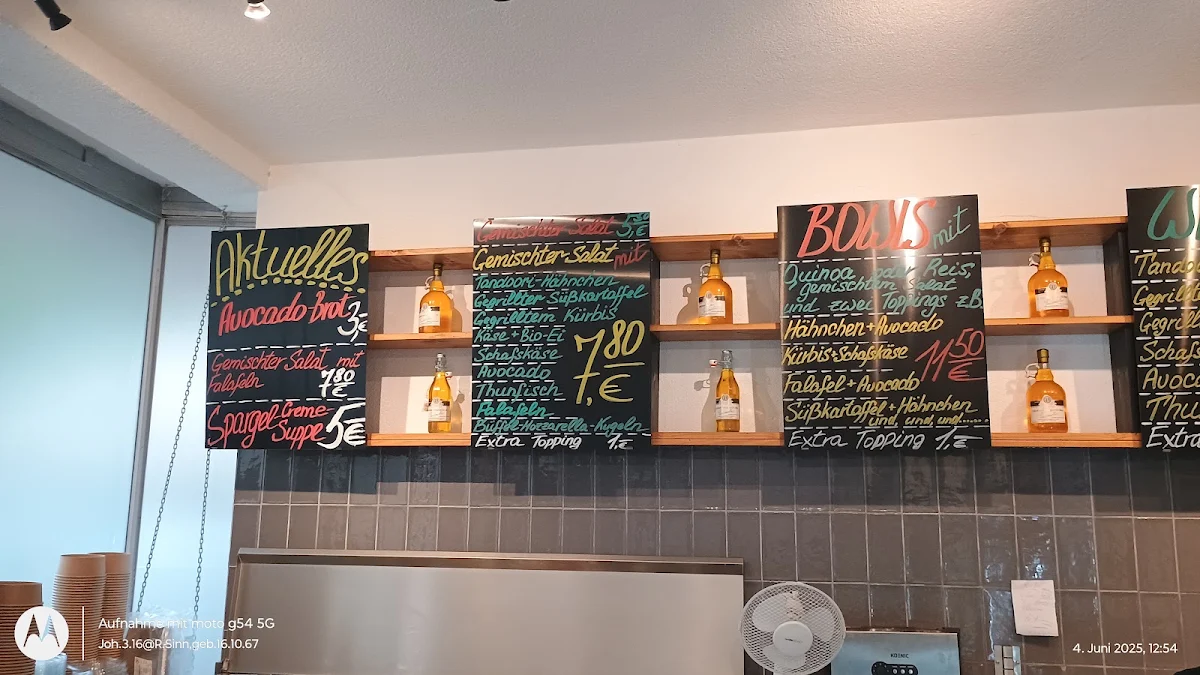 Aktuelles
Avocado-Brot
3,-€
Gemischter Salat mit
Falafeln 7,80 €
Spargel-Creme-
Suppe 5,-€
Gemischter Salat 5,80 €
Gemischter-Salat mit
Tandoori-Hähnchen
Gegrillter Süßkartoffel
Gegrilltem Kürbis
Käse + Bio-Ei
Schafskäse
Avocado
Thunfisch
Falafeln
Büffel-Mozzarella-Kugeln
7,80 €
Extra Topping 1,-€
BOWLS mit
Quinoa oder Reis,
gemischtem Salat
und zwei Toppings z.B.
Hähnchen + Avocado
Kürbis + Schafskäse
Falafel + Avocado
Süßkartoffel + Hähnchen
und, und, und......
11,50 €
Extra Topping 1,-€
Tandoo
Gegrillt
Gegrill
Schafs
Avoca
Thu
Extra
KOENIC
Aufnahme mit moto g54 5G
Joh.3.16@R.Sinn.geb.16.10.67
4. Juni 2025, 12:54